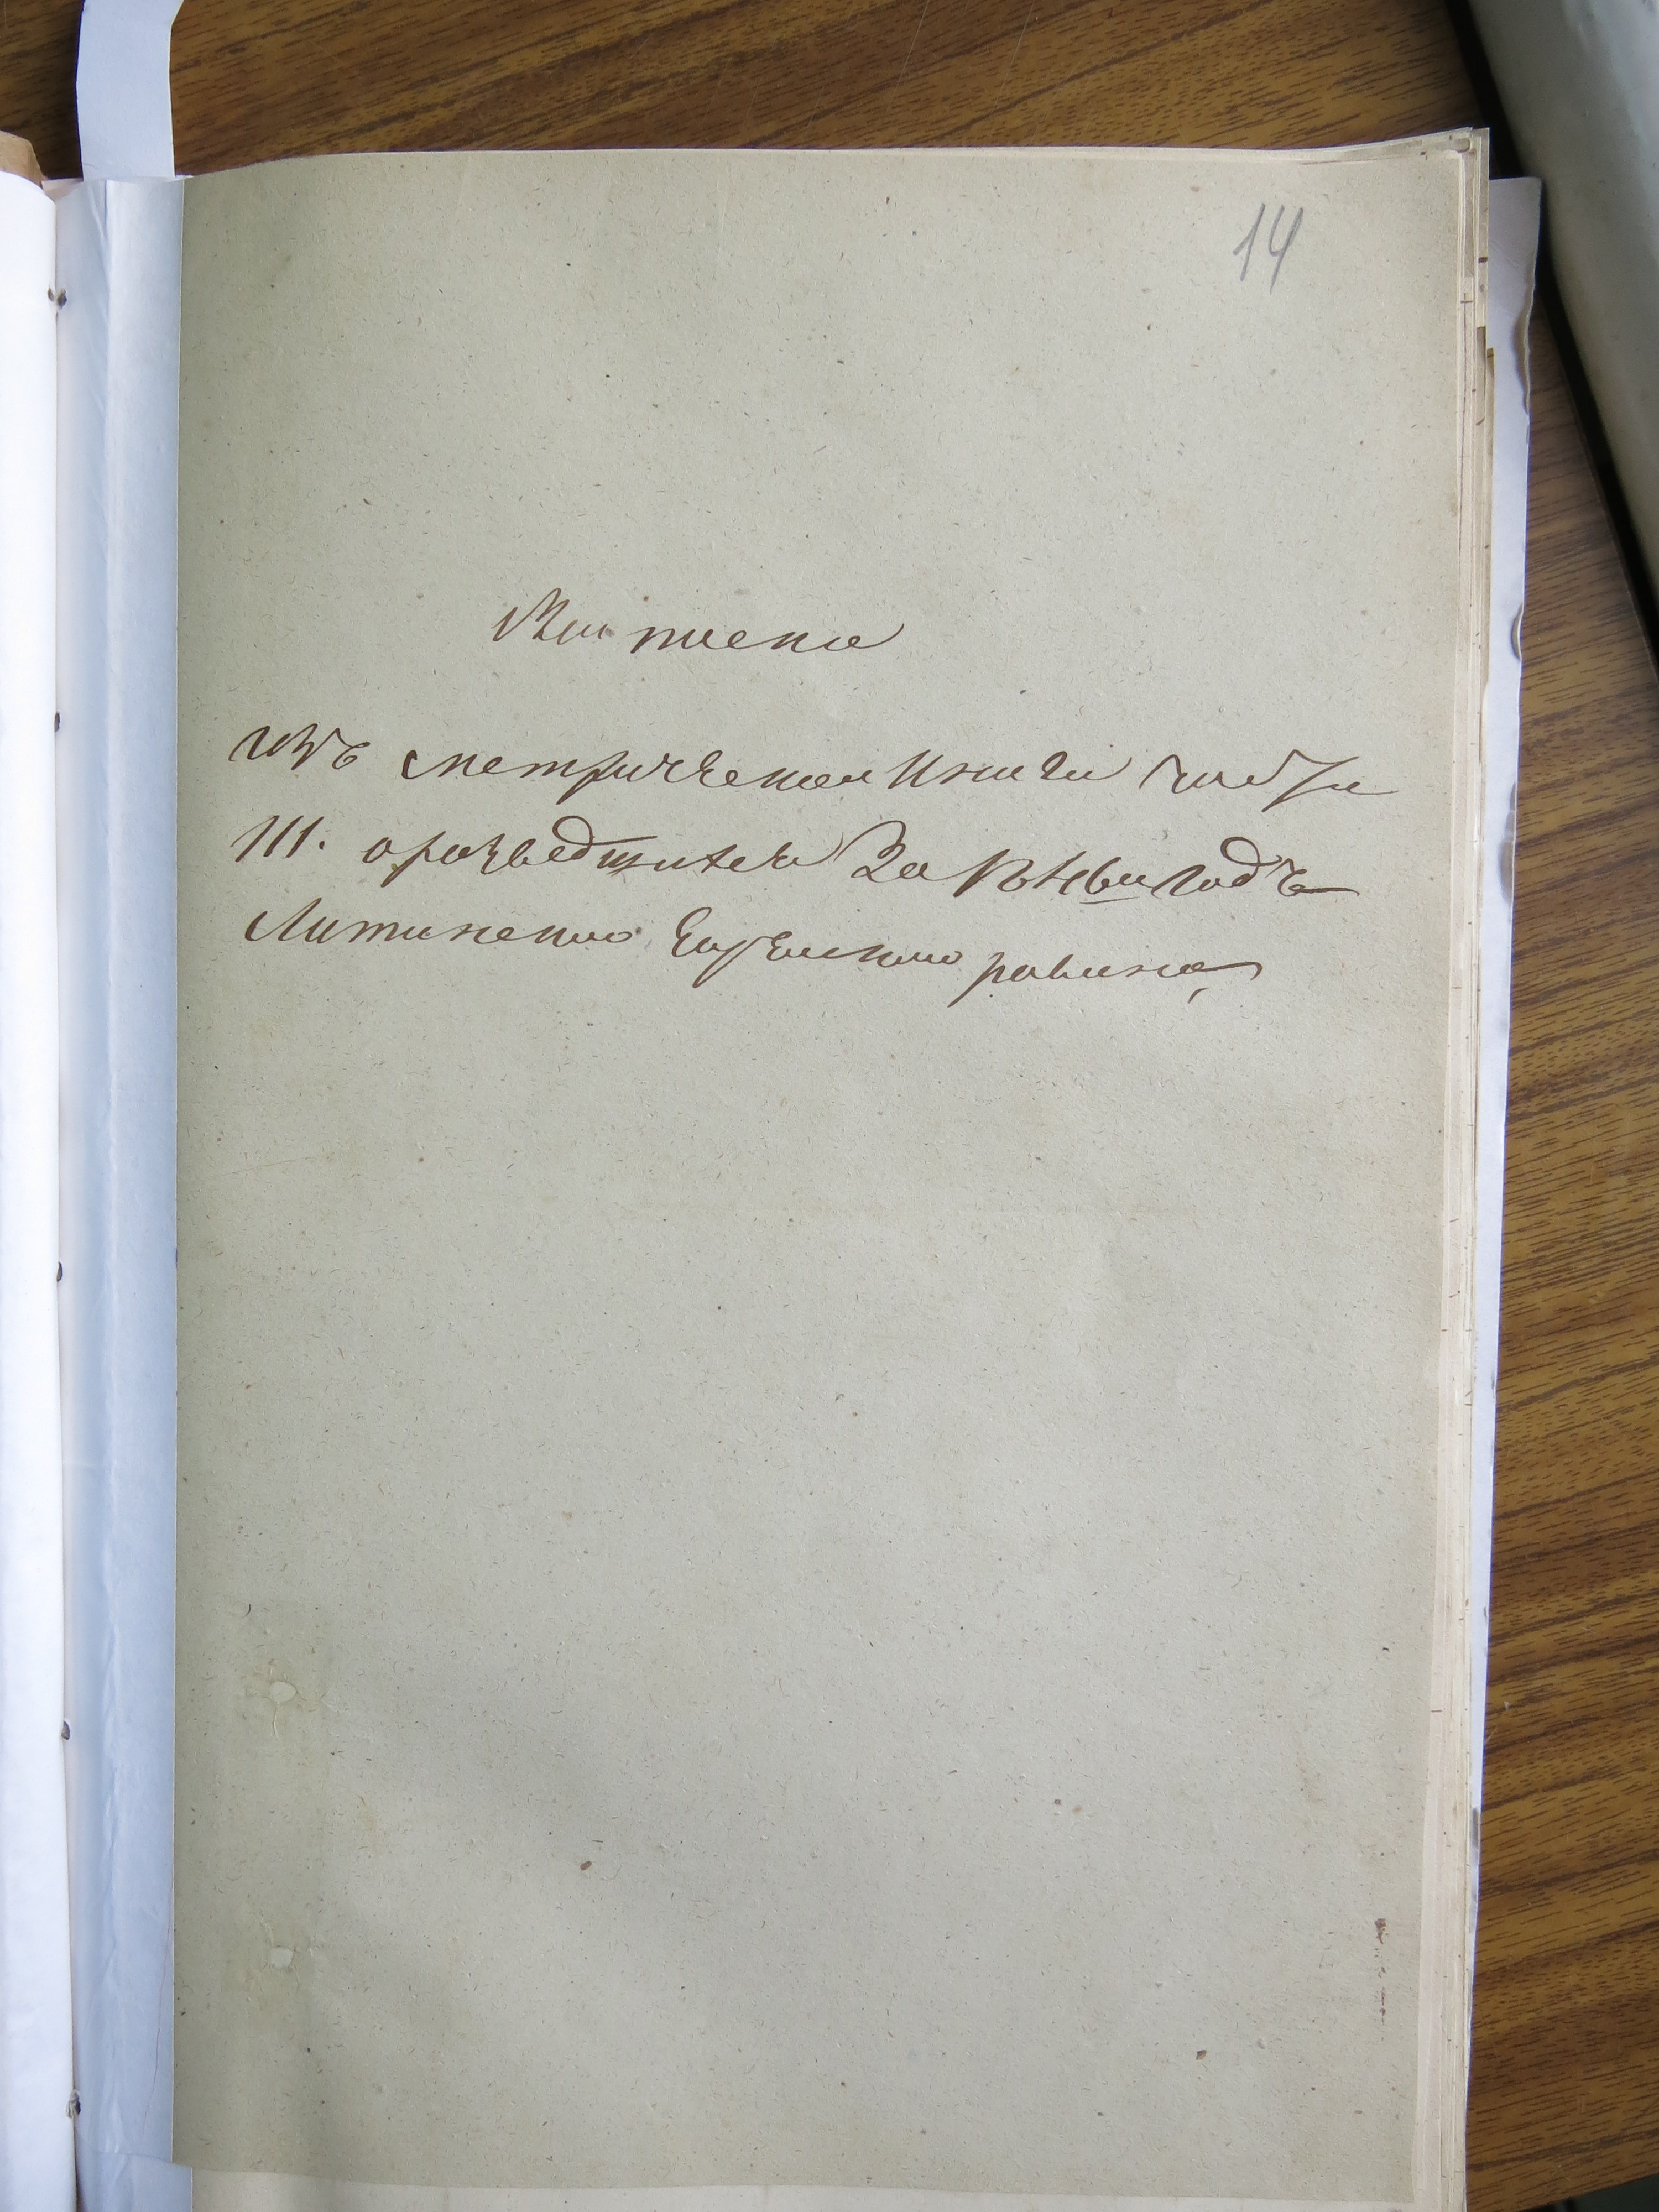 14
Выписка
изъ метрической книги части
III. о разведшихся За годъ
Литинскаго Еврейскаго равина